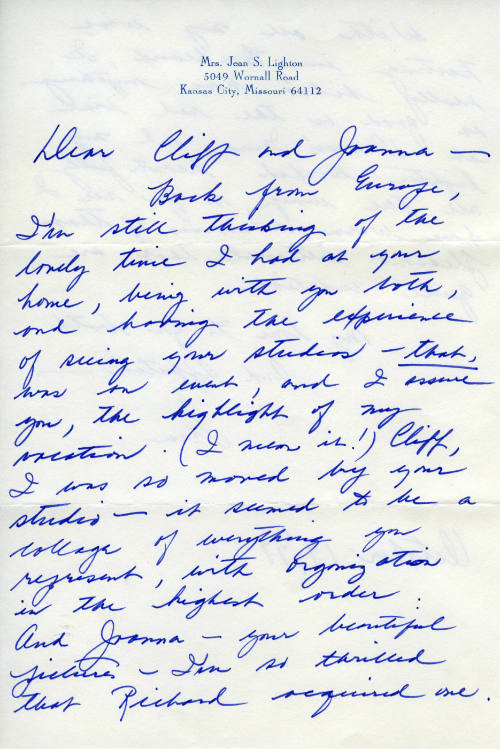 Mrs. Jean S. Lighton
5049 Wornall Road
Kansas City, Missouri 64112
Dear Cliff and Joanna —
Back from Europe,
I'm still thinking of the
lovely time I had at your
home, being with you both,
and having the experience
of seeing your studios – that,
was an event, and I assure
you, the highlight of my
vacation. (I mean it!) Cliff,
I was so moved by your
studio – it seemed to be a
collage of everything you
represent, with organization
in the highest order.
And Joanna – your beautiful
pictures – I'm so thrilled
that Richard acquired one.